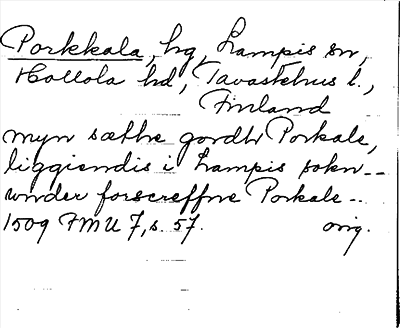 Porkkala, hg, Lampis sn,
Hollola hd, Tavastehus l.,
Finland
myn sæthe gordh Porkale,
liggiendis i Lampis sokn --
vnder forscreffne Porkale --
1509 FMU 7, s. 57. orig.